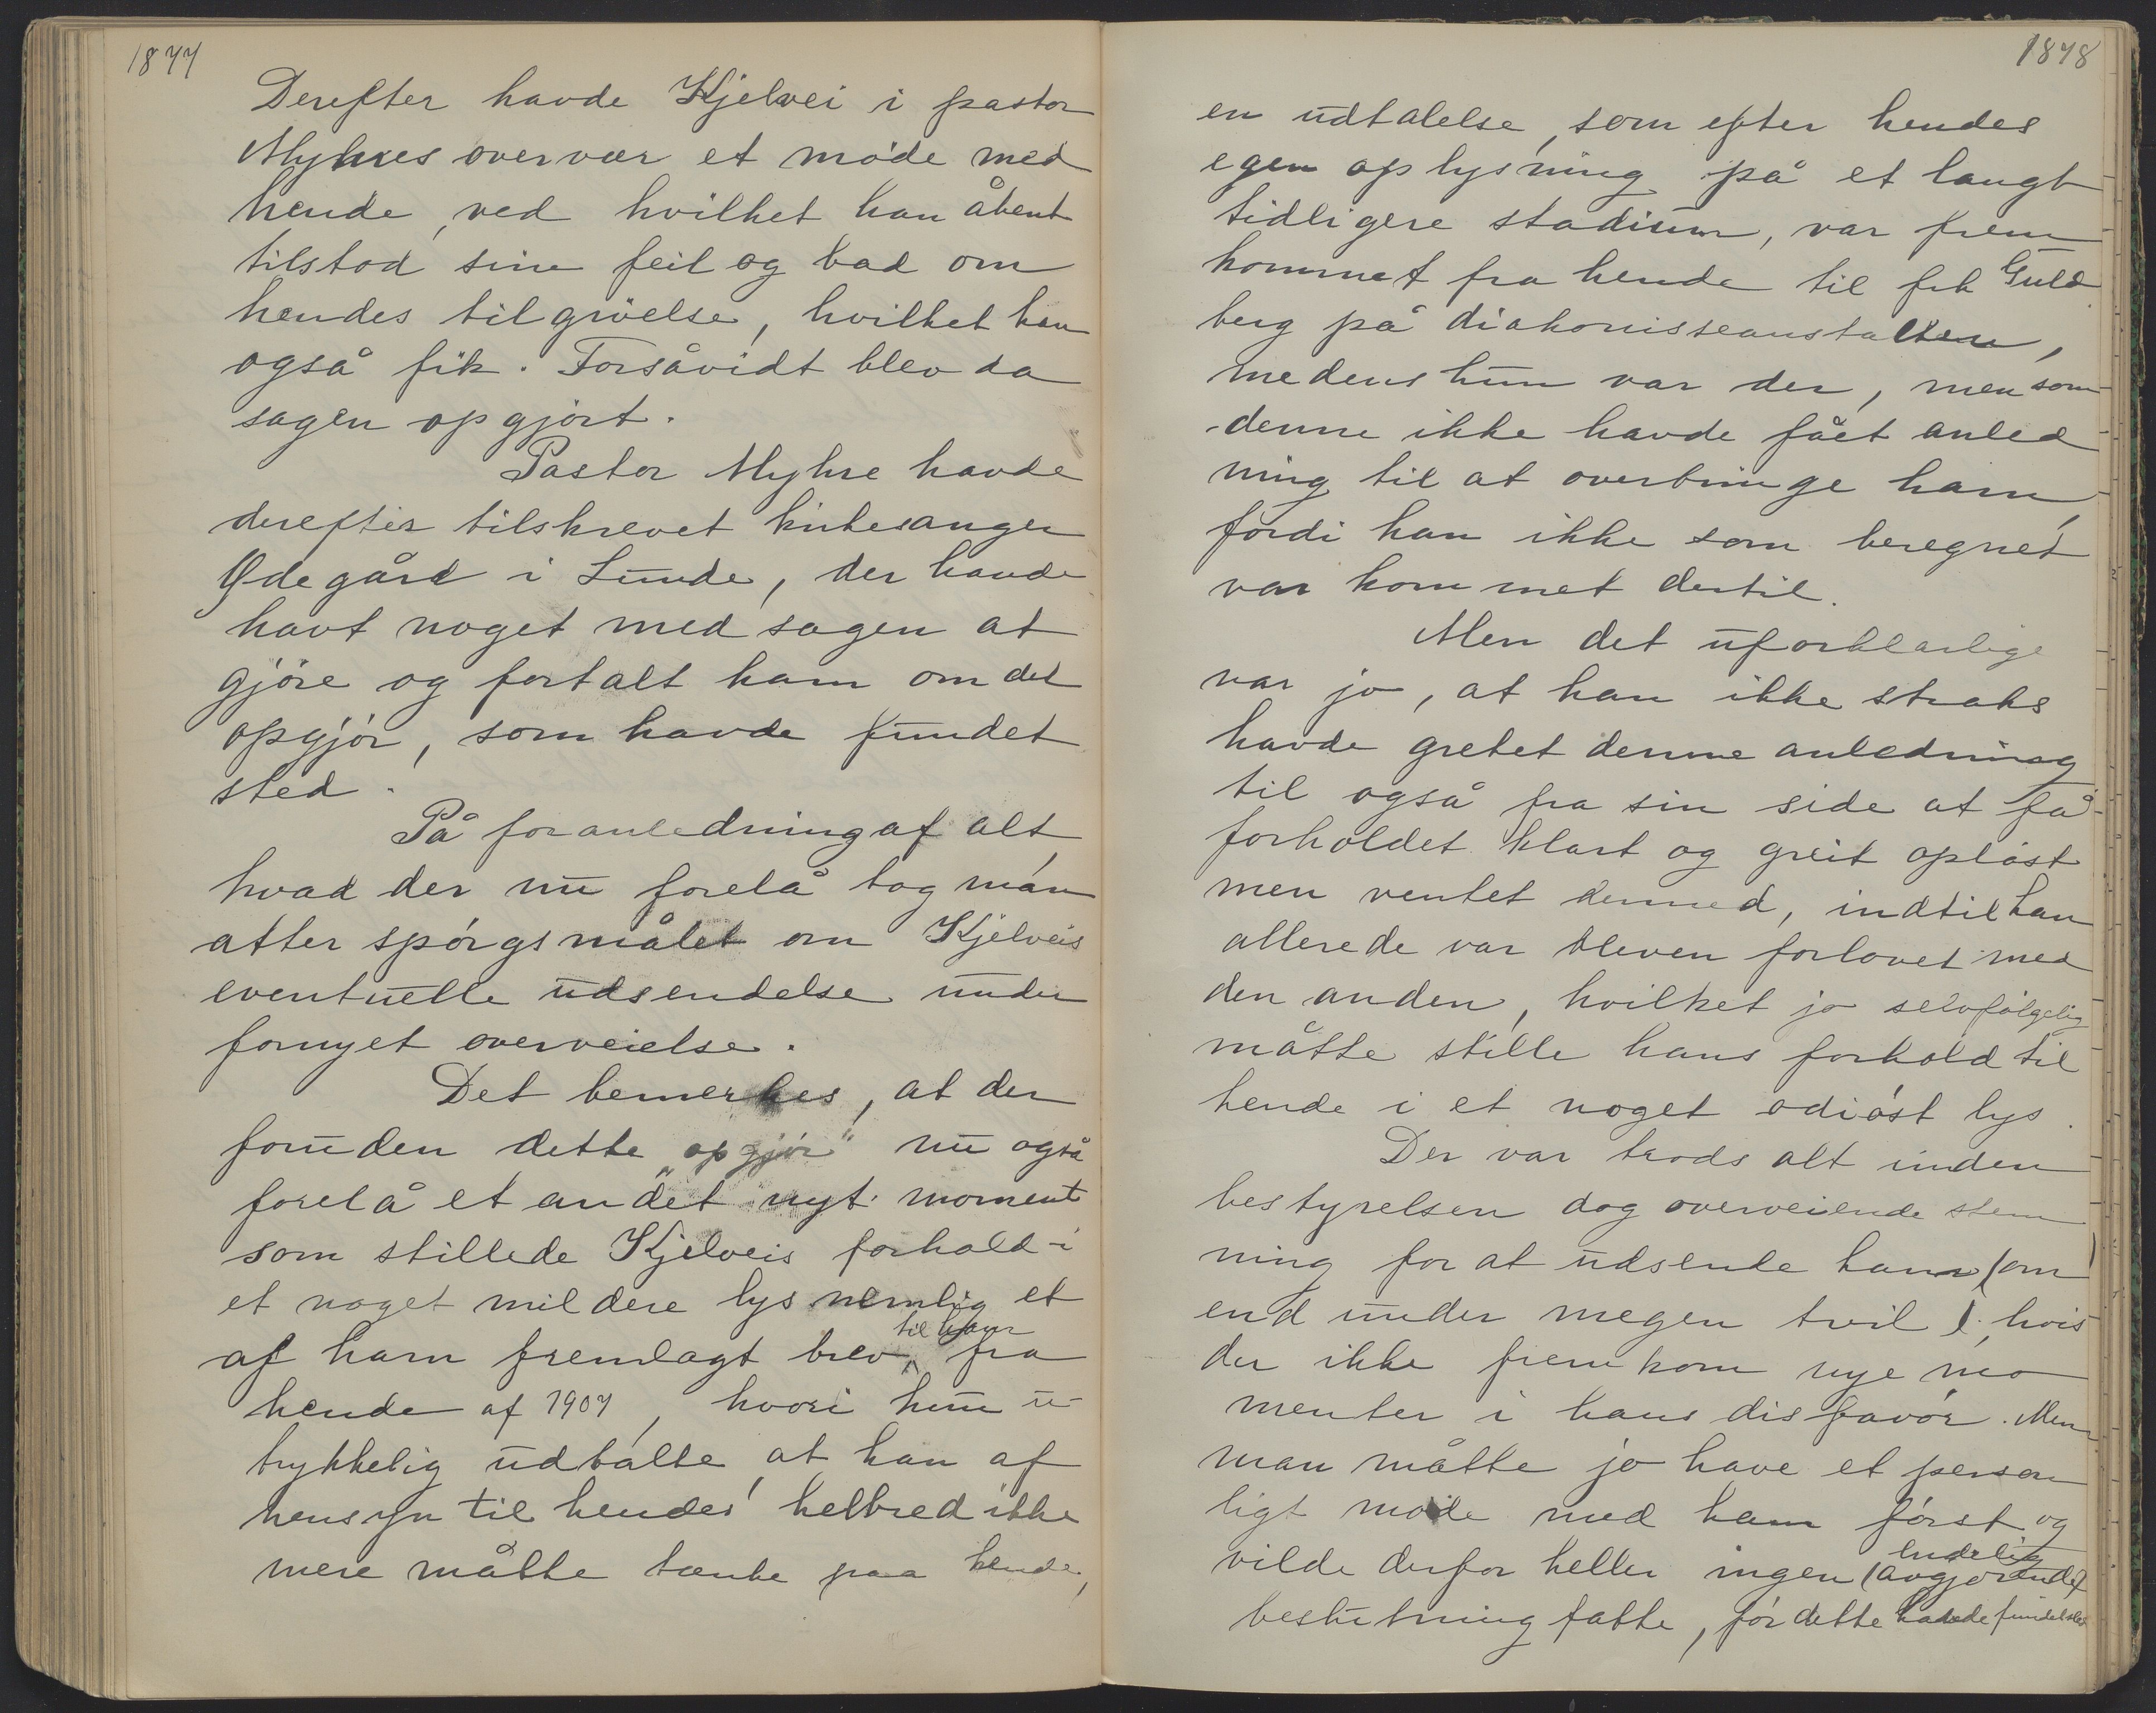 1877
Derefter havde Kjelvei i pastor
Myhres overvær et møde med
hende, ved hvilket han åbent
tilstod sine feil og bad om
hendes tilgivelse, hvilket han
også fik. Forsåvidt blev da
sagen opgjort.
Pastor Myhre havde
derefter tilskrevet kirkesanger
Ødegård i Lunde, der havde
havt noget med sagen at
gjøre og fortalt ham om det
opgjør, som havde fundet
sted.
På foranledning af alt
hvad der nu forelå tog man
atter spørgsmålet om Kjelveis
eventuelle udsendelse under
fornyet overveielse.
Det bemerkes, at der
foruden dette „opgjør" nu også
forelå et andet nyt moment
som stillede Kjelveis forhold i
et noget mildere lys nemlig et
til ham
af ham fremlagt brev, fra
hende af 1907, hvori hun u-
trykkelig udtalte at han af
hensyn til hendes helbred ikke
mere måtte tænke paa hende,
1878
en udtalelse, som efter hendes
egen oplysning på et langt
tidligere stadium, var frem
kommet fra hende til frk Guld
berg på diakonisseanstalten,
medens hun var der, men som
denne ikke havde fået anled
ning til at overbringe ham,
fordi han ikke som beregnet
var kommet dertil.
Men det uforklarlige
var jo, at han ikke straks
havde grebet denne anledning
til også fra sin side at få
forholdet klart og greit opløst
men ventet dermed, indtil han
allerede var bleven forlovet med
den anden, hvilket jo selvfølgelig
måtte stille hans forhold til
hende i et noget odiøst lys.
Der var trods alt inden
bestyrelsen dog overveiende stem
ning for at udsende ham (om
end under megen tvil), hvis
der ikke fremkom nye mo
menter i hans disfavør. Men
man måtte jo have et person
ligt møde med ham først og
endelig
vilde derfor heller ingen (avgjørende)
beslutning fatte, før dette havde fundet sted